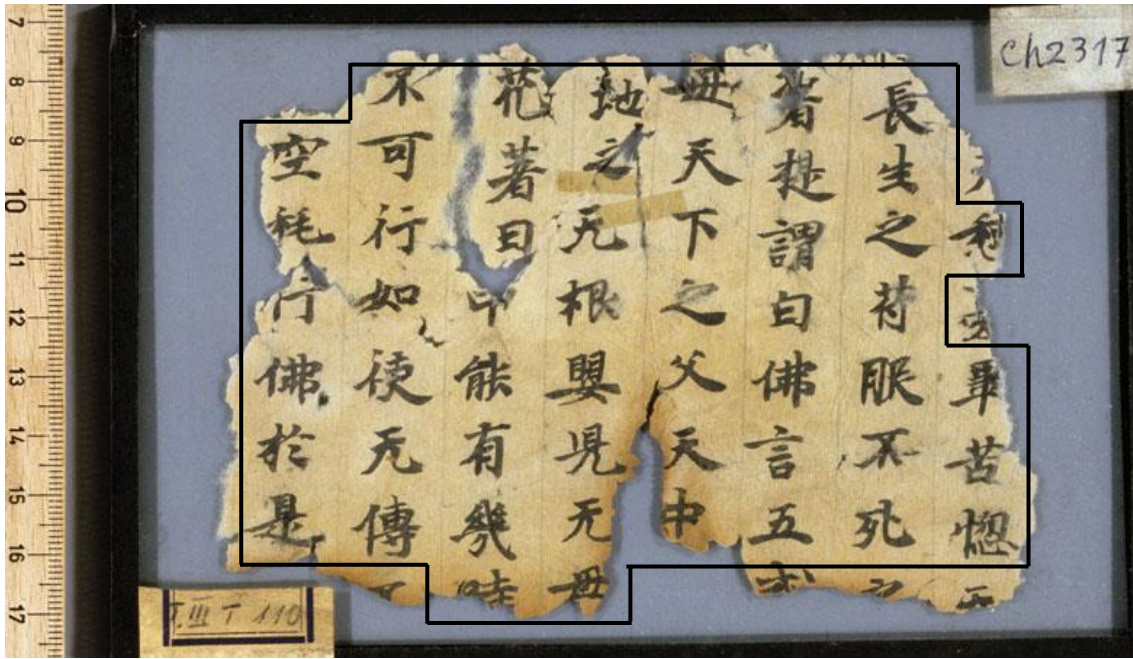 Ch2317
罪苦惱
長生之苻服不死之
者提謂白佛言五
母天下之父天中
地之无根嬰兒无母
花著日中能有幾時
不可行如使无傳
空耗行佛於是
T.III T 110
7
8
9
10
11
12
13
14
15
16
17